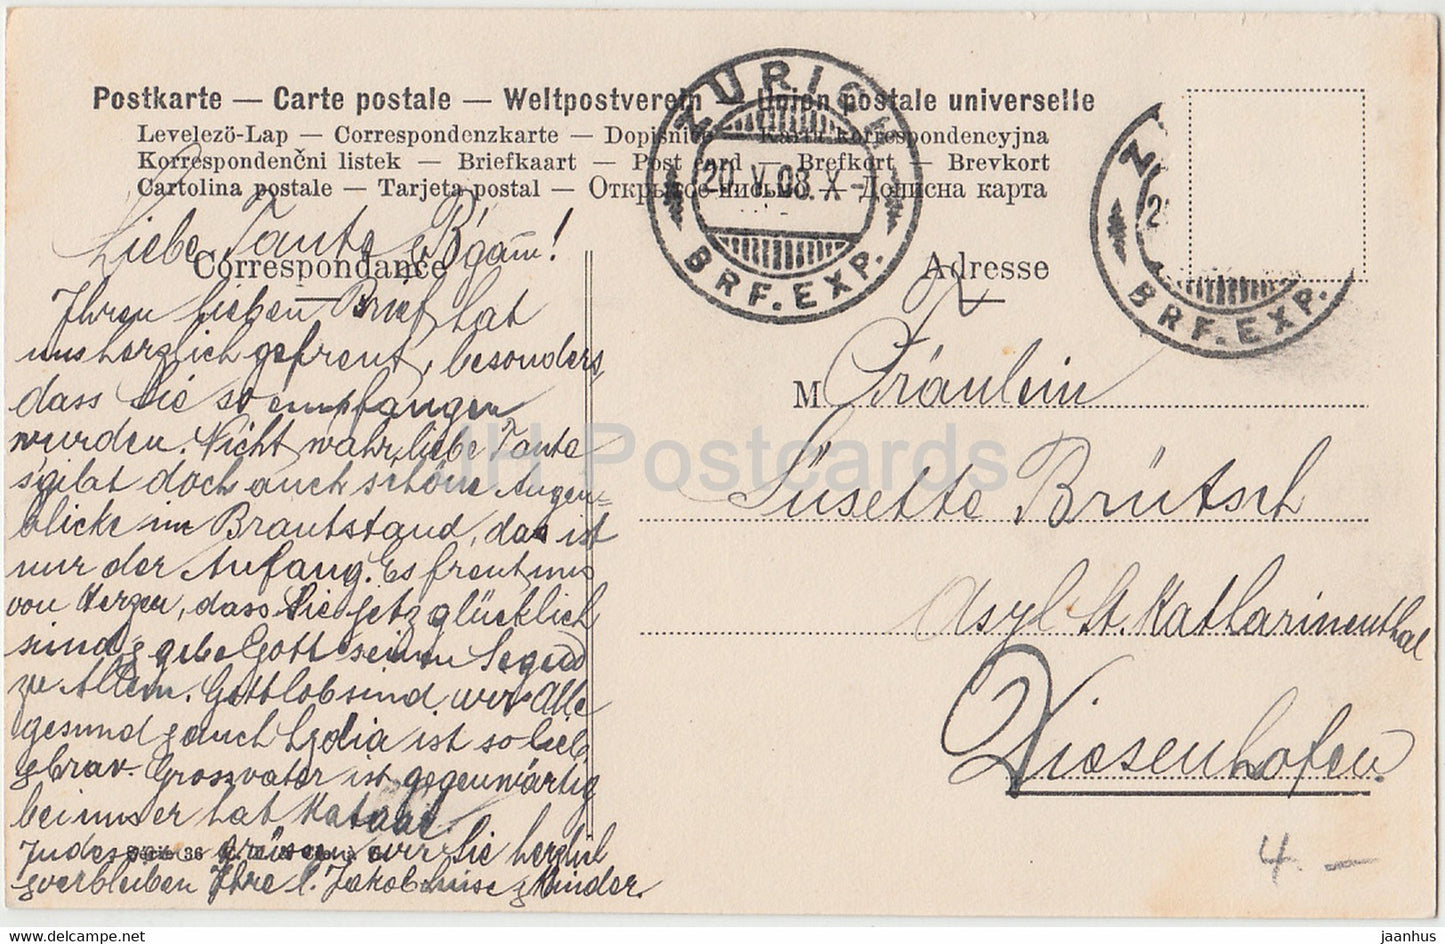 Postkarte — Carte postale — Weltpostverein — Union postale universelle
Levelezö-Lap — Correspondenzkarte — Dopisnice — Karta korrespondencyjna
Korrespondenčni listek — Briefkaart — Post card — Brefkort — Brevkort
Cartolina postale — Tarjeta postal — Открытое письмо — Дописна карта
ZÜRICH
20.V.08.X-
BRF.EXP.
Z
2
BRF.EXP.
Correspondance
Adresse
Liebe Tante &
Ihren lieben Brief hat
uns herzlich gefreut, besonders,
dass Sie so empfangen
wurden. Nicht wahr, liebe Tante
s'gibt doch auch schöne Augen=
blicke im Brautstand, das ist
nur der Anfang. Es freut uns
von Herzen, dass Sie jetz glücklich
sind & gebe Gott seinen Segen
zu Allem. Gottlob sind wir Alle
gesund & auch Lydia ist so lieb
& brav. Groszvater ist gegenwärtig
bei uns er hat
Indes grüssen wir Sie herzlich
& verbleiben Ihre l. Jakob Luise & Kinder.
M Fräulein
Süsette Brütsch
Asyl St. Katharinenthal
Diesenhofen.
4.—
JH Postcards
www.hippostcard.com
jaanhus